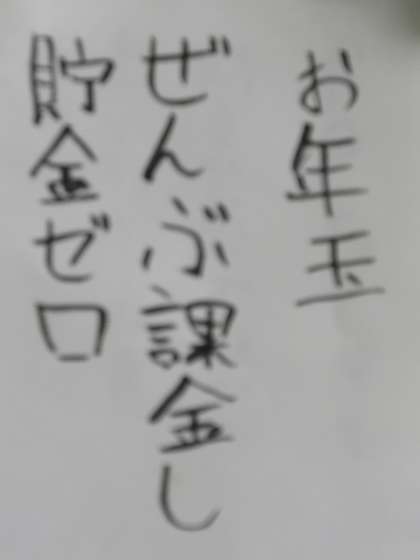 お年玉
ぜんぶ課金し
貯金ゼロ